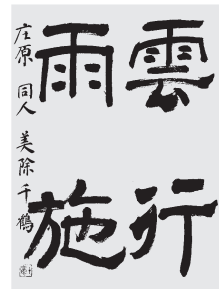 雲行
雨施
庄原 同人 美除千鶴